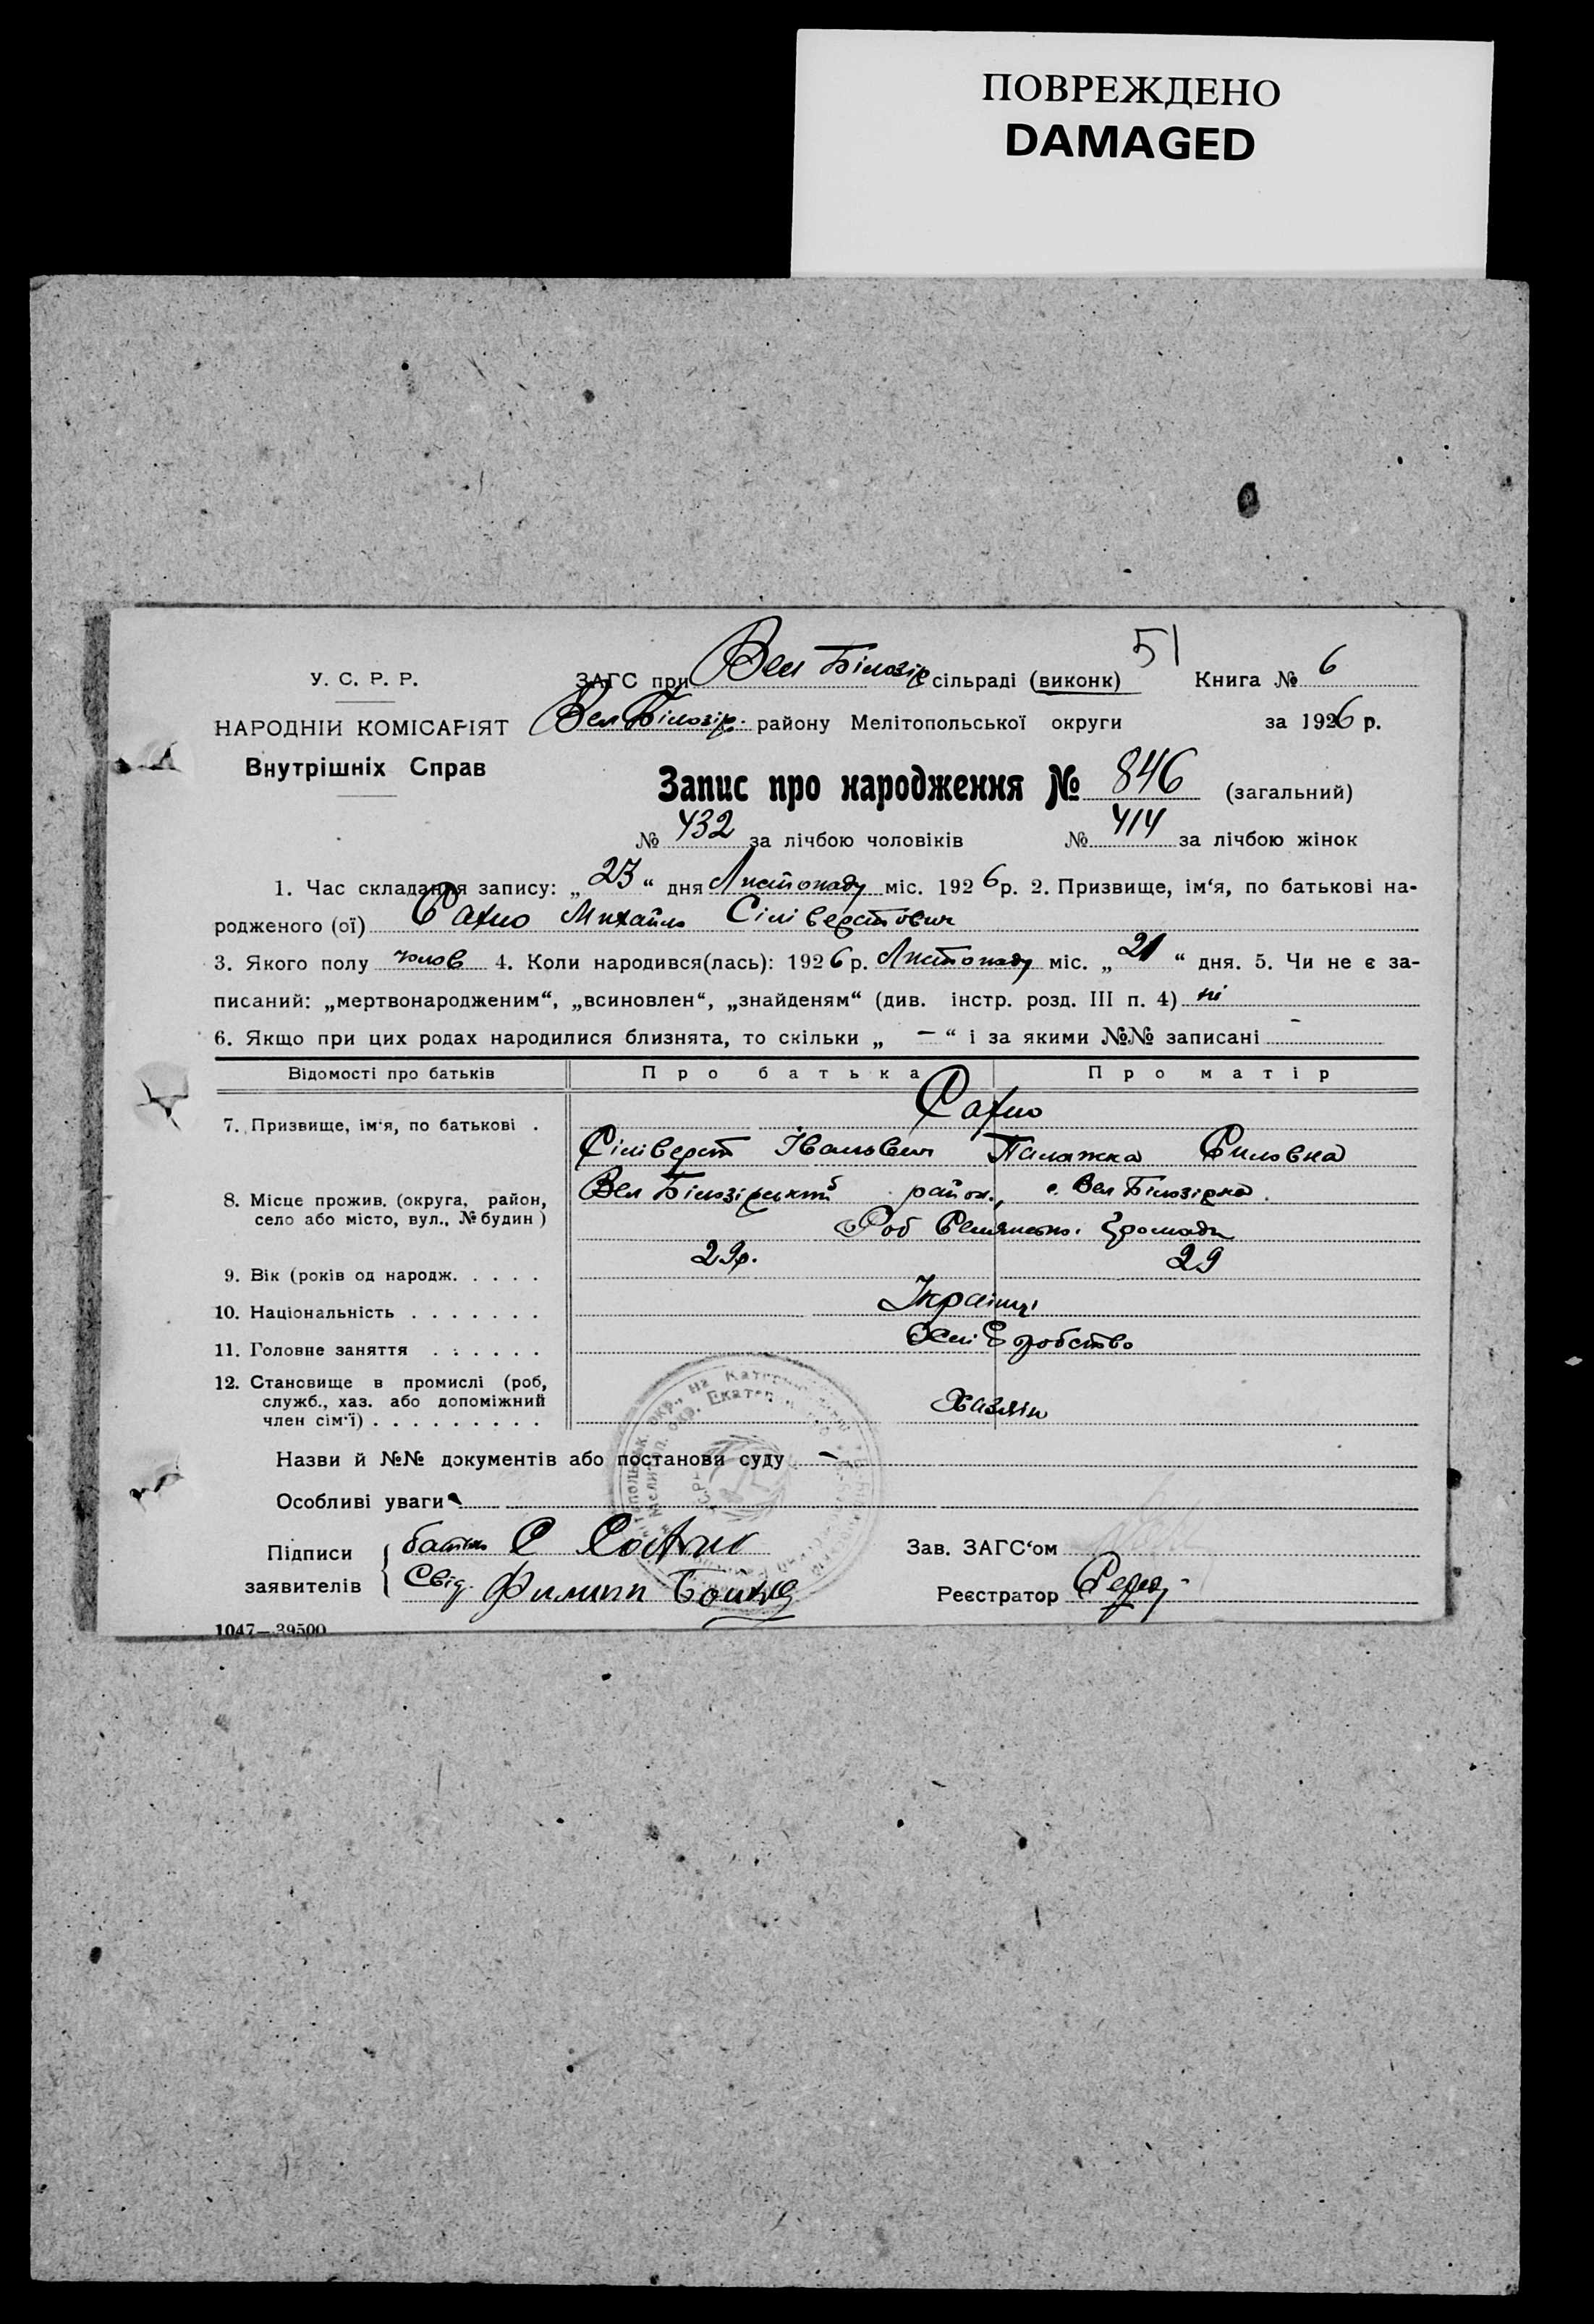 ПОВРЕЖДЕНО
DAMAGED
51
У. С. Р. Р.
ЗАГС при Вел Білозір сільраді (виконк) Книга № 6
НАРОДНІЙ КОМІСАРІЯТ Вел Білозір. району Мелітопольської округи за 1926 р.
Внутрішніх Справ
Запис про народження № 846 (загальний)
№ 432 за лічбою чоловіків № 414 за лічбою жінок
1. Час складання запису: „ 23 “ дня Листопаду міс. 1926 р. 2. Призвище, ім‘я, по батькові на-
родженого (ої) Сахно Михайло Сіліверстович
3. Якого полу чолов 4. Коли народився(лась): 1926 р. Листопаду міс. „ 21 “ дня. 5. Чи не є за-
писаний: „мертвонародженим“, „всиновлен“, „знайденям“ (див. інстр. розд. III п. 4) ні
6. Якщо при цих родах народилися близнята, то скільки „ — “ і за якими №№ записані –
Відомості про батьків Про батька Про матір
7. Призвище, ім‘я, по батькові . Сахно
Сіліверст Іванович Палажка Силовна
8. Місце прожив. (округа, район, Вел Білозірський район., с. Вел Білозірка.
село або місто, вул., № будин)
громади
9. Вік (років од народж. . . . . 29р. 29
10. Національність . . . . . . . Українці
11. Головне заняття . . . . . . Хліборобство
12. Становище в промислі (роб, служб., хаз. або допоміжний член сім‘ї) . . . . . . . . . Хазяїн
Назви й №№ документів або постанови суду –
Особливі уваги
Підписи заявителів { батько С Сахно
Свід. Филип Бойко
Зав. ЗАГС‘ом
Реєстратор
1047—39500